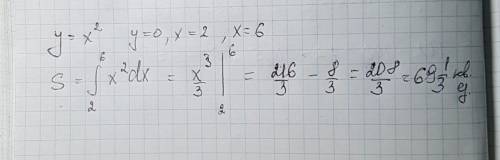 y = x² y=0, x=2, x=6
S = ∫₂⁶ x²dx = x³/3 |₂⁶ = 216/3 − 8/3 = 208/3 = 69 1/3 кв. ед.